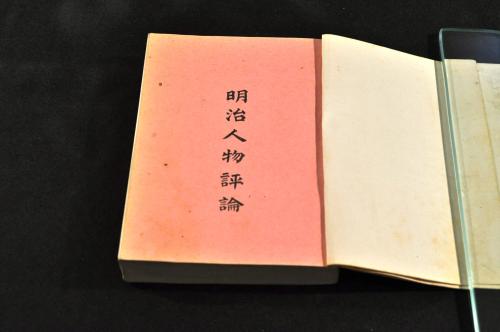 明治人物評論